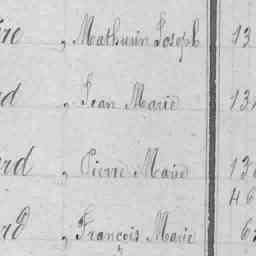 re „ Mathurin Joseph 13
rd „ Jean Marie 13
rd „ Pierre Marie 13
46
rd „ François Marie 6